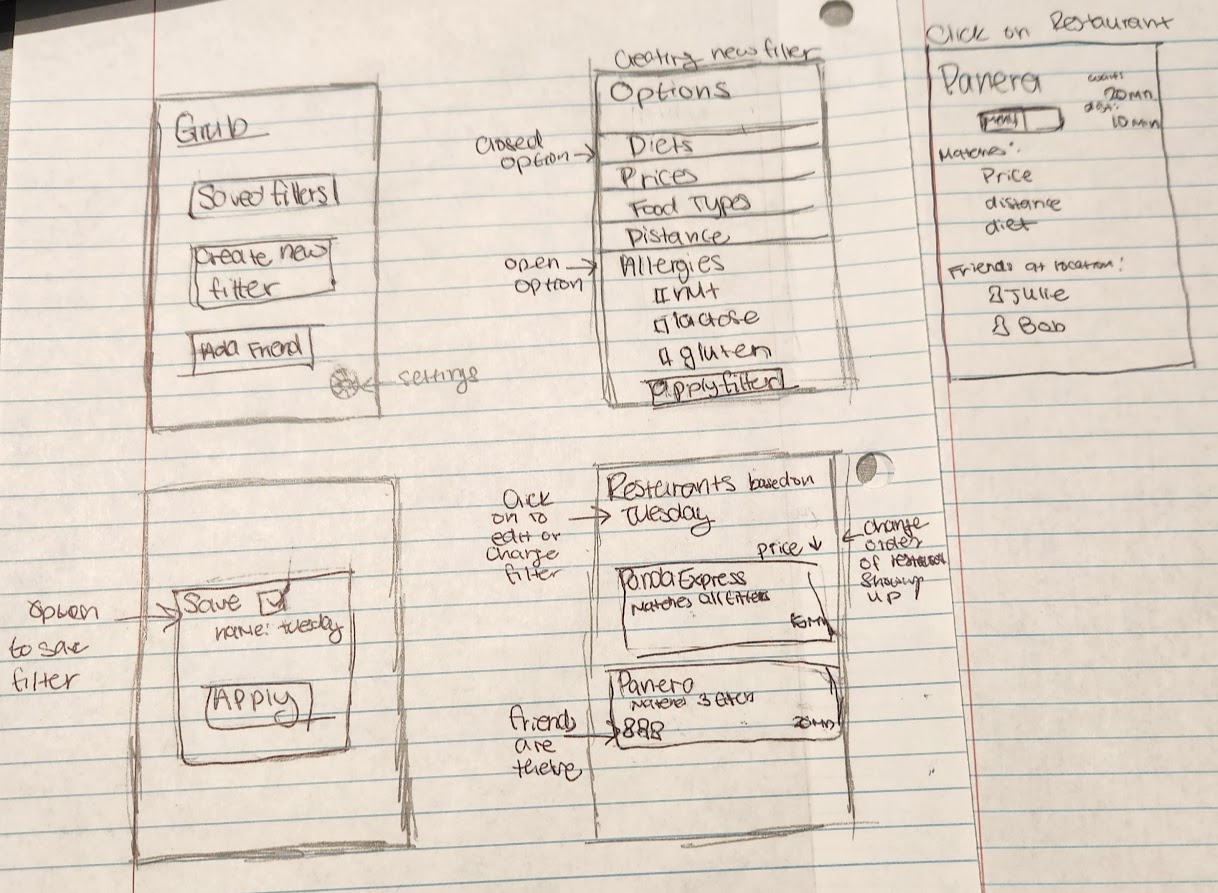 Grub
Saved filters
Create new
filter
Add Friend
settings
Creating new filter
Options
Closed
option
Diets
Prices
Food Types
Distance
open
option
Allergies
nut
lactose
gluten
Apply filter
Click on Restaurant
Panera
wait:
20mn
dist:
10mn
Menu
Matches:
Price
distance
diet
Friends at location:
Julie
Bob
Option
to save
filter
Save
name: tuesday
Apply
Click
on to
edit or
change
filter
Resturants based on
Tuesday
price ↓
change
order
of
showing
up
Panda Express
Matches all filters
Panera
Matches 3
20mn
friends
are
there